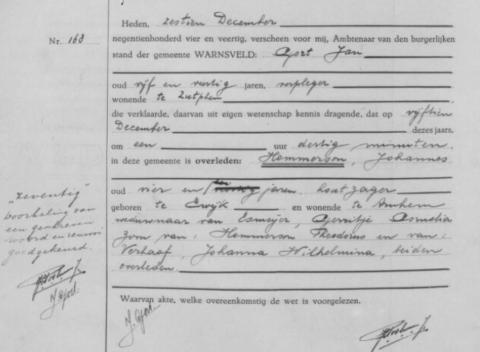 Nr. 168
Heden, zestien December
negentienhonderd vier en veertig, verscheen voor mij, Ambtenaar van den burgerlijken
stand der gemeente WARNSVELD: Gort Jan
oud vijf en veertig jaren, verpleger
wonende te Zutphen
die verklaarde, daarvan uit eigen wetenschap kennis dragende, dat op vijftien
December dezes jaars,
om een uur dertig minuten.
in deze gemeente is overleden: Hemmerson, Johannes
oud vier en jaren houtzager
geboren te Ewijk en wonende te Arnhem
weduwnaar van Esmeijer, Gerritje Cornelia
zoon van: Hemmerson Theodorus en van:
Verhaaf, Johanna Wilhelmina, beiden
overleden
Waarvan akte, welke overeenkomstig de wet is voorgelezen.
"zeventig"
doorhaling van
een geschreven
woord en renvooi
goedgekeurd.
J. Gort.
J. Gort.